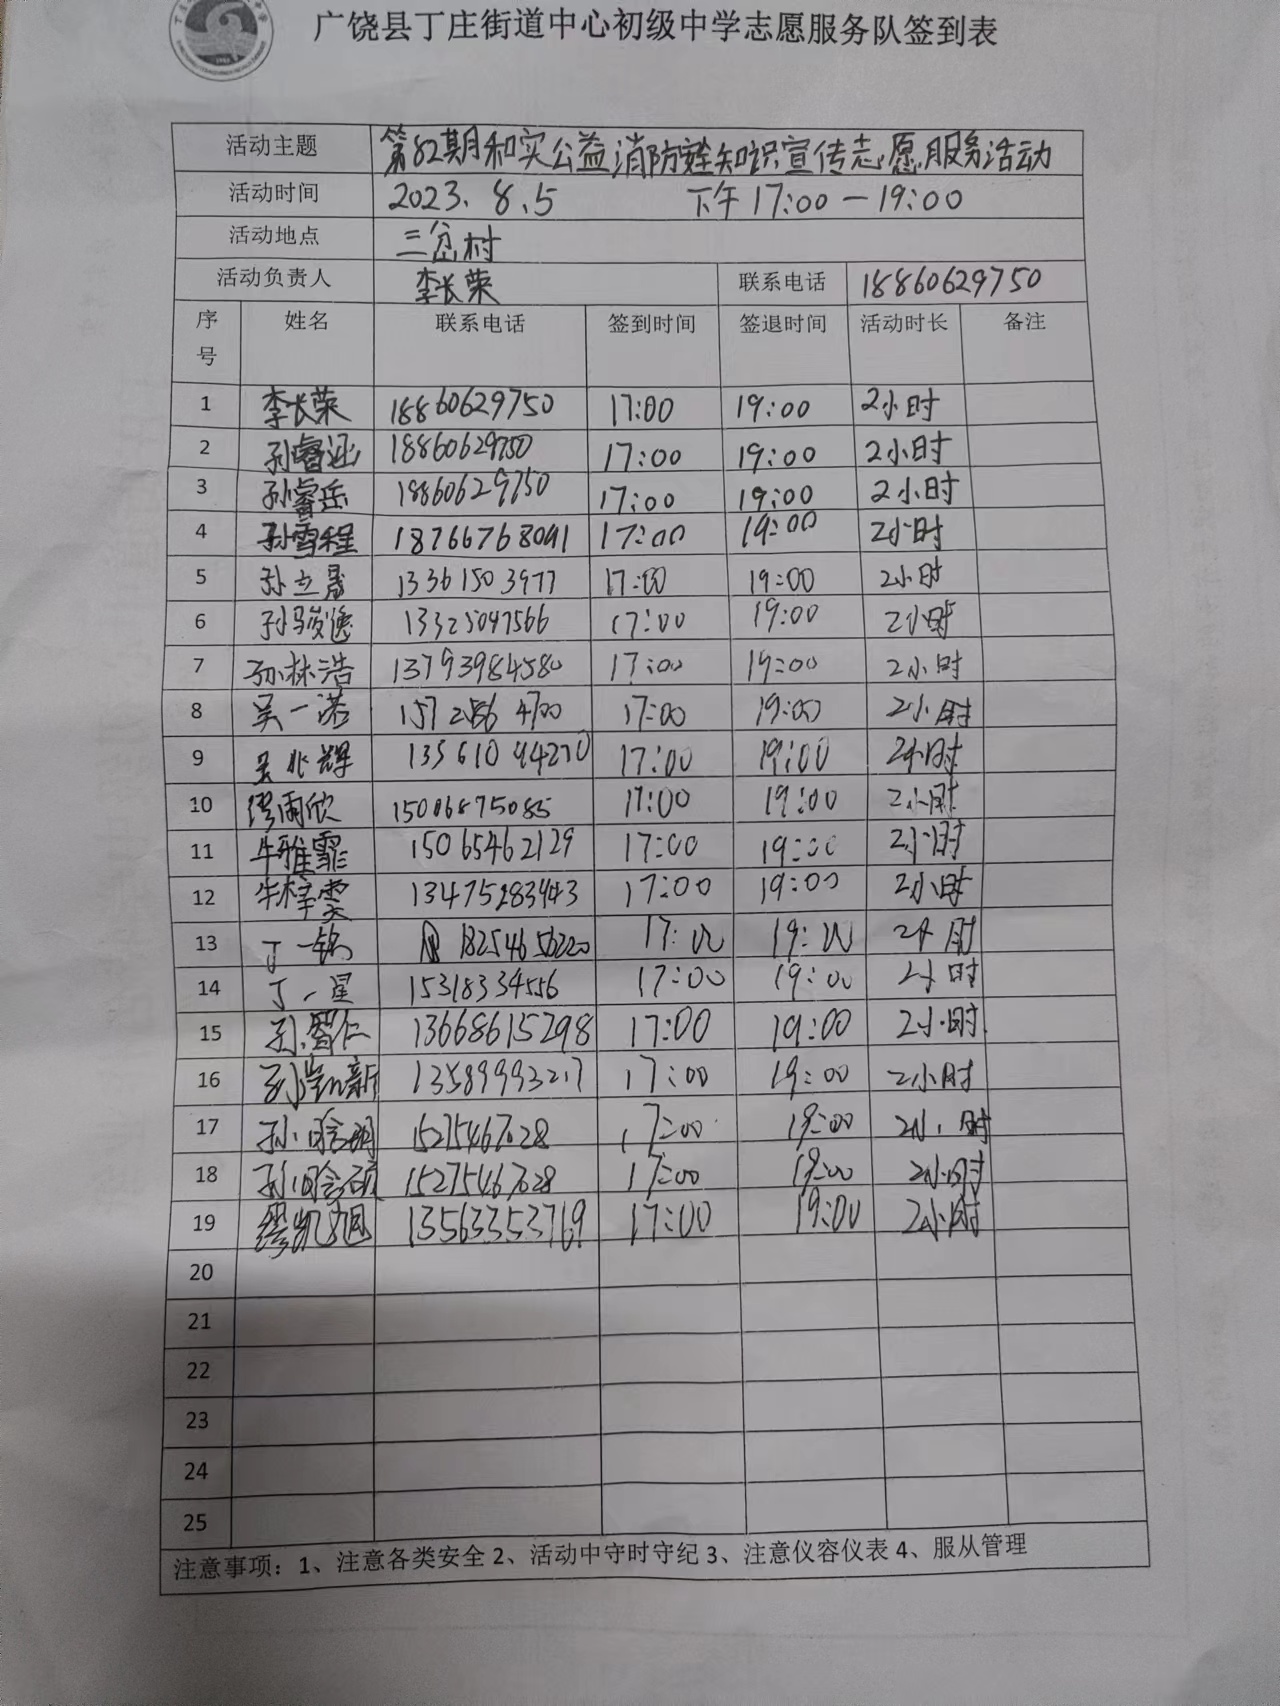 广饶县丁庄街道中心初级中学志愿服务队签到表
活动主题 第82期和实公益消防安全知识宣传志愿服务活动
活动时间 2023.8.5 下午17:00—19:00
活动地点 三岔村
活动负责人 李长荣 联系电话 18860629750
序号 姓名 联系电话 签到时间 签退时间 活动时长 备注
1 李长荣 18860629750 17:00 19:00 2小时
2 孙睿涵 18860629750 17:00 19:00 2小时
3 孙睿岳 18860629750 17:00 19:00 2小时
4 孙雪程 18766768091 17:00 19:00 2小时
5 孙立晟 13361503977 17:00 19:00 2小时
6 孙骏逸 13325047566 17:00 19:00 2小时
7 孙林浩 13793984580 17:00 19:00 2小时
8 吴一诺 17:00 19:00 2小时
9 吴兆辉 13561094270 17:00 19:00 2小时
10 缪雨欣 15006875085 17:00 19:00 2小时
11 牛雅霏 15065462129 17:00 19:00 2小时
12 牛梓雯 13475283943 17:00 19:00 2小时
13 丁一铭 18254656220 17:00 19:00 2小时
14 丁一星 15318334556 17:00 19:00 2小时
15 孙智仁 13668615298 17:00 19:00 2小时
16 孙凯新 13589993217 17:00 19:00 2小时
17 孙晗明 15275467028 17:00 19:00 2小时
18 孙晗硕 15275467028 17:00 19:00 2小时
19 缪凯旭 13563353769 17:00 19:00 2小时
20
21
22
23
24
25
注意事项：1、注意各类安全 2、活动中守时守纪 3、注意仪容仪表 4、服从管理